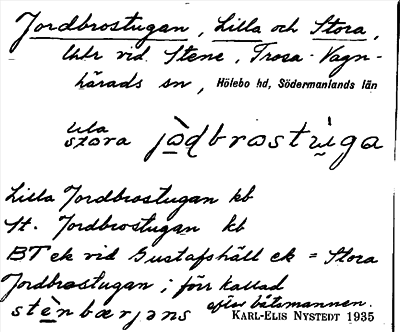 Jordbrostugan, Lilla och Stora,
lhtr vid Stene, Trosa-Vagn-
härads sn, Hölebo hd, Södermanlands län
lila
stora jo̱dbrostu̱ga
Lilla Jordbrostugan kb
St. Jordbrostugan kb
BT ek vid Gustafshäll ek = Stora
Jordbrostugan; förr kallad
stènbærjəns efter båtsmannen.
KARL-ELIS NYSTEDT 1935